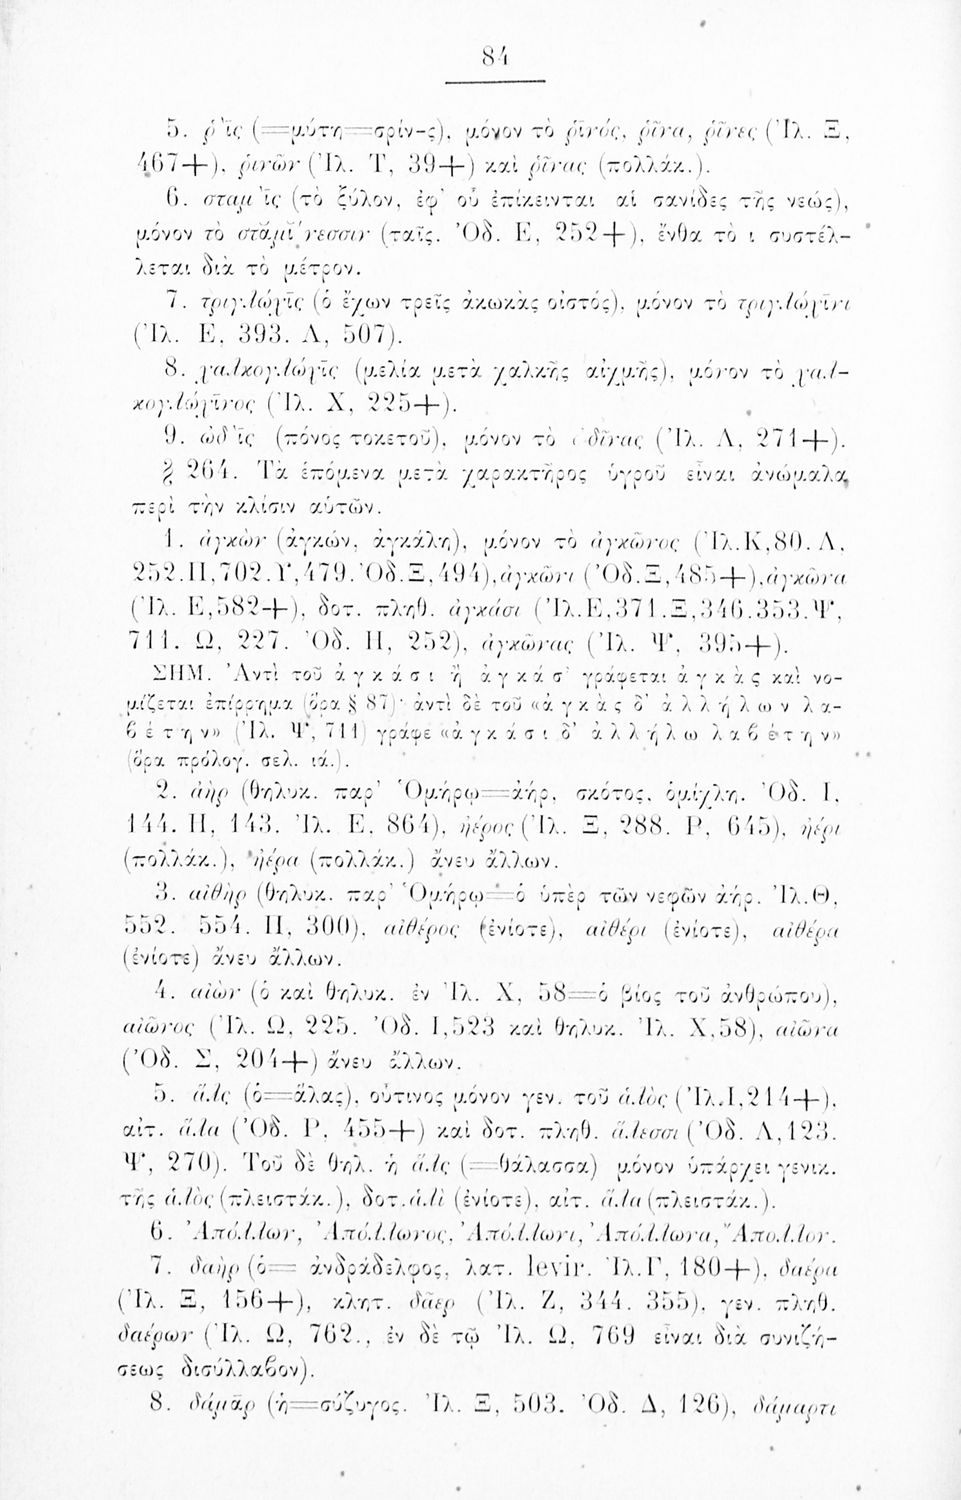 84
5. ῥ'ὶς (=μύτη=σρίν-ς), μόνον τὸ ῥῖνός, ῥῖνα, ῥῖνες (Ἰλ. Ξ,
467+), ῥινῶν (Ἰλ. Τ, 39+) καὶ ῥῖνας (πολλάκ.).
6. σταμ'ὶς (τὸ ξύλον, ἐφ' οὗ ἐπίκεινται αἱ σανίδες τῆς νεώς),
μόνον τὸ στᾰμῐ́νεσσιν (ταῖς. Ὀδ. Ε, 252+), ἔνθα τὸ ι συστέλ-
λεται διὰ τὸ μέτρον.
7. τριγλώχῑς (ὁ ἔχων τρεῖς ἀκωκὰς οἰστός), μόνον τὸ τριγλώχῑνι
(Ἰλ. Ε, 393. Λ, 507).
8. χαλκογλώχῑς (μελία μετὰ χαλκῆς αἰχμῆς), μόνον τὸ χαλ-
κογλώχῑνος (Ἰλ. Χ, 225+).
9. ὠδ'ὶς (πόνος τοκετοῦ), μόνον τὸ ὠδῖνας (Ἰλ. Λ, 271+).
§ 264. Τὰ ἑπόμενα μετὰ χαρακτῆρος ὑγροῦ εἶναι ἀνώμαλα
περὶ τὴν κλίσιν αὐτῶν.
1. ἀγκὼν (ἀγκών, ἀγκάλη), μόνον τὸ ἀγκῶνος (Ἰλ.Κ,80. Λ,
252.Π,702.Υ,479.Ὀδ.Ξ,494), ἀγκῶνι (Ὀδ.Ξ,485+), ἀγκῶνα
(Ἰλ. Ε,582+), δοτ. πληθ. ἀγκάσι (Ἰλ.Ε,371.Ξ,346.353.Ψ,
711. Ω, 227. Ὀδ. Η, 252), ἀγκῶνας (Ἰλ. Ψ, 395+).
ΣΗΜ. Ἀντὶ τοῦ ἀγκάσι ἢ ἀγκάσ' γράφεται ἀγκὰς καὶ νο-
μίζεται ἐπίρρημα (ὅρα § 87)· ἀντὶ δὲ τοῦ «ἀγκὰς δ' ἀλλήλων λα-
βέτην» (Ἰλ. Ψ, 711) γράφε «ἀγκάσι δ' ἀλλήλω λαβέτην»
(ὅρα πρόλογ. σελ. ιά.).
2. ἀὴρ (θηλυκ. παρ' Ὁμήρῳ=ἀήρ, σκότος, ὁμίχλη. Ὀδ. Ι,
144. Η, 143. Ἰλ. Ε, 864), ἠέρος (Ἰλ. Ξ, 288. Ρ, 645), ἠέρι
(πολλάκ.), ἠέρα (πολλάκ.) ἄνευ ἄλλων.
3. αἰθὴρ (θηλυκ. παρ' Ὁμήρῳ=ὁ ὑπὲρ τῶν νεφῶν ἀήρ. Ἰλ.Θ,
552. 554. Π, 300), αἰθέρος (ἐνίοτε), αἰθέρι (ἐνίοτε), αἰθέρα
(ἐνίοτε) ἄνευ ἄλλων.
4. αἰὼν (ὁ καὶ θηλυκ. ἐν Ἰλ. Χ, 58=ὁ βίος τοῦ ἀνθρώπου),
αἰῶνος (Ἰλ. Ω, 225. Ὀδ. Ι,523 καὶ θηλυκ. Ἰλ. Χ,58), αἰῶνα
(Ὀδ. Σ, 204+) ἄνευ ἄλλων.
5. ἅλς (ὁ=ἅλας), οὗτινος μόνον γεν. τοῦ ἁλὸς (Ἰλ.Ι,214+),
αἰτ. ἅλα (Ὀδ. Ρ, 455+) καὶ δοτ. πληθ. ἅλεσσι (Ὀδ. Λ,123.
Ψ, 270). Τοῦ δὲ θηλ. ἡ ἅλς (=θάλασσα) μόνον ὑπάρχει γενικ.
τῆς ἁλὸς (πλειστάκ.), δοτ.ἁλὶ (ἐνίοτε), αἰτ. ἅλα (πλειστάκ.).
6. Ἀπόλλων, Ἀπόλλωνος, Ἀπόλλωνι, Ἀπόλλωνα, Ἄπολλον.
7. δαὴρ (ὁ= ἀνδράδελφος, λατ. levir. Ἰλ.Γ, 180+), δαέρα
(Ἰλ. Ξ, 156+), κλητ. δᾶερ (Ἰλ. Ζ, 344. 355), γεν. πληθ.
δαέρων (Ἰλ. Ω, 762., ἐν δὲ τῷ Ἰλ. Ω, 769 εἶναι διὰ συνιζή-
σεως δισύλλαβον).
8. δάμᾰρ (ἡ=σύζυγος. Ἰλ. Ξ, 503. Ὀδ. Δ, 126), δάμαρτι